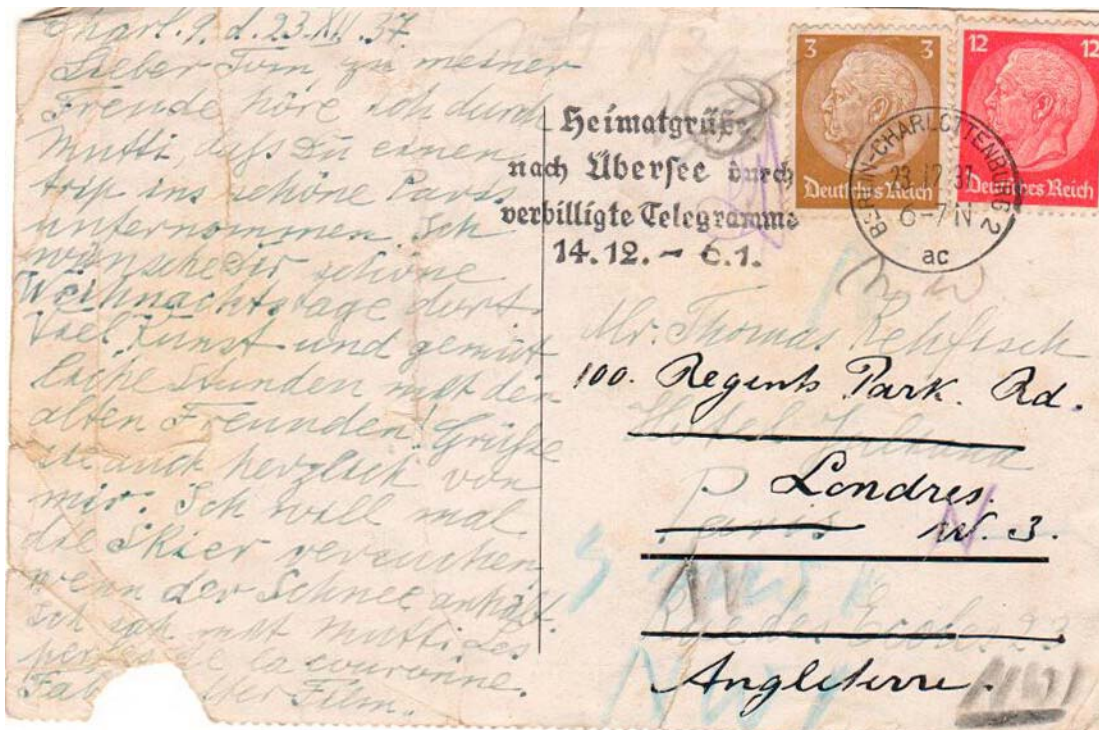 Charl. 9. d. 23.XII.37.
Lieber Tom, zu meiner
Freude höre ich durch
Mutti, dass Du einen
trip ins schöne Paris
unternommen. Ich
wünsche Dir schöne
Weihnachtstage dort.
Viel Kunst und gemüt
liche Stunden mit den
alten Freunden! Grüße
sie auch herzlich von
mir. Ich will mal
die Skier versuchen,
wenn der Schnee anhält.
Ich sah mit Mutti Les
perles de la couronne.
der Film.
Heimatgrüße
nach Übersee durch
verbilligte Telegramme
14.12. - 6.1.
3 3
Deutsches Reich
12 12
Deutsches Reich
BERLIN-CHARLOTTENBURG 2
23.12.37
6-7N
ac
Mr. Thomas Rehfisch
100. Regents Park. Rd.
Hotel
Londres.
Paris
N.W. 3.
Rue des Ecoles 23
Angleterre.